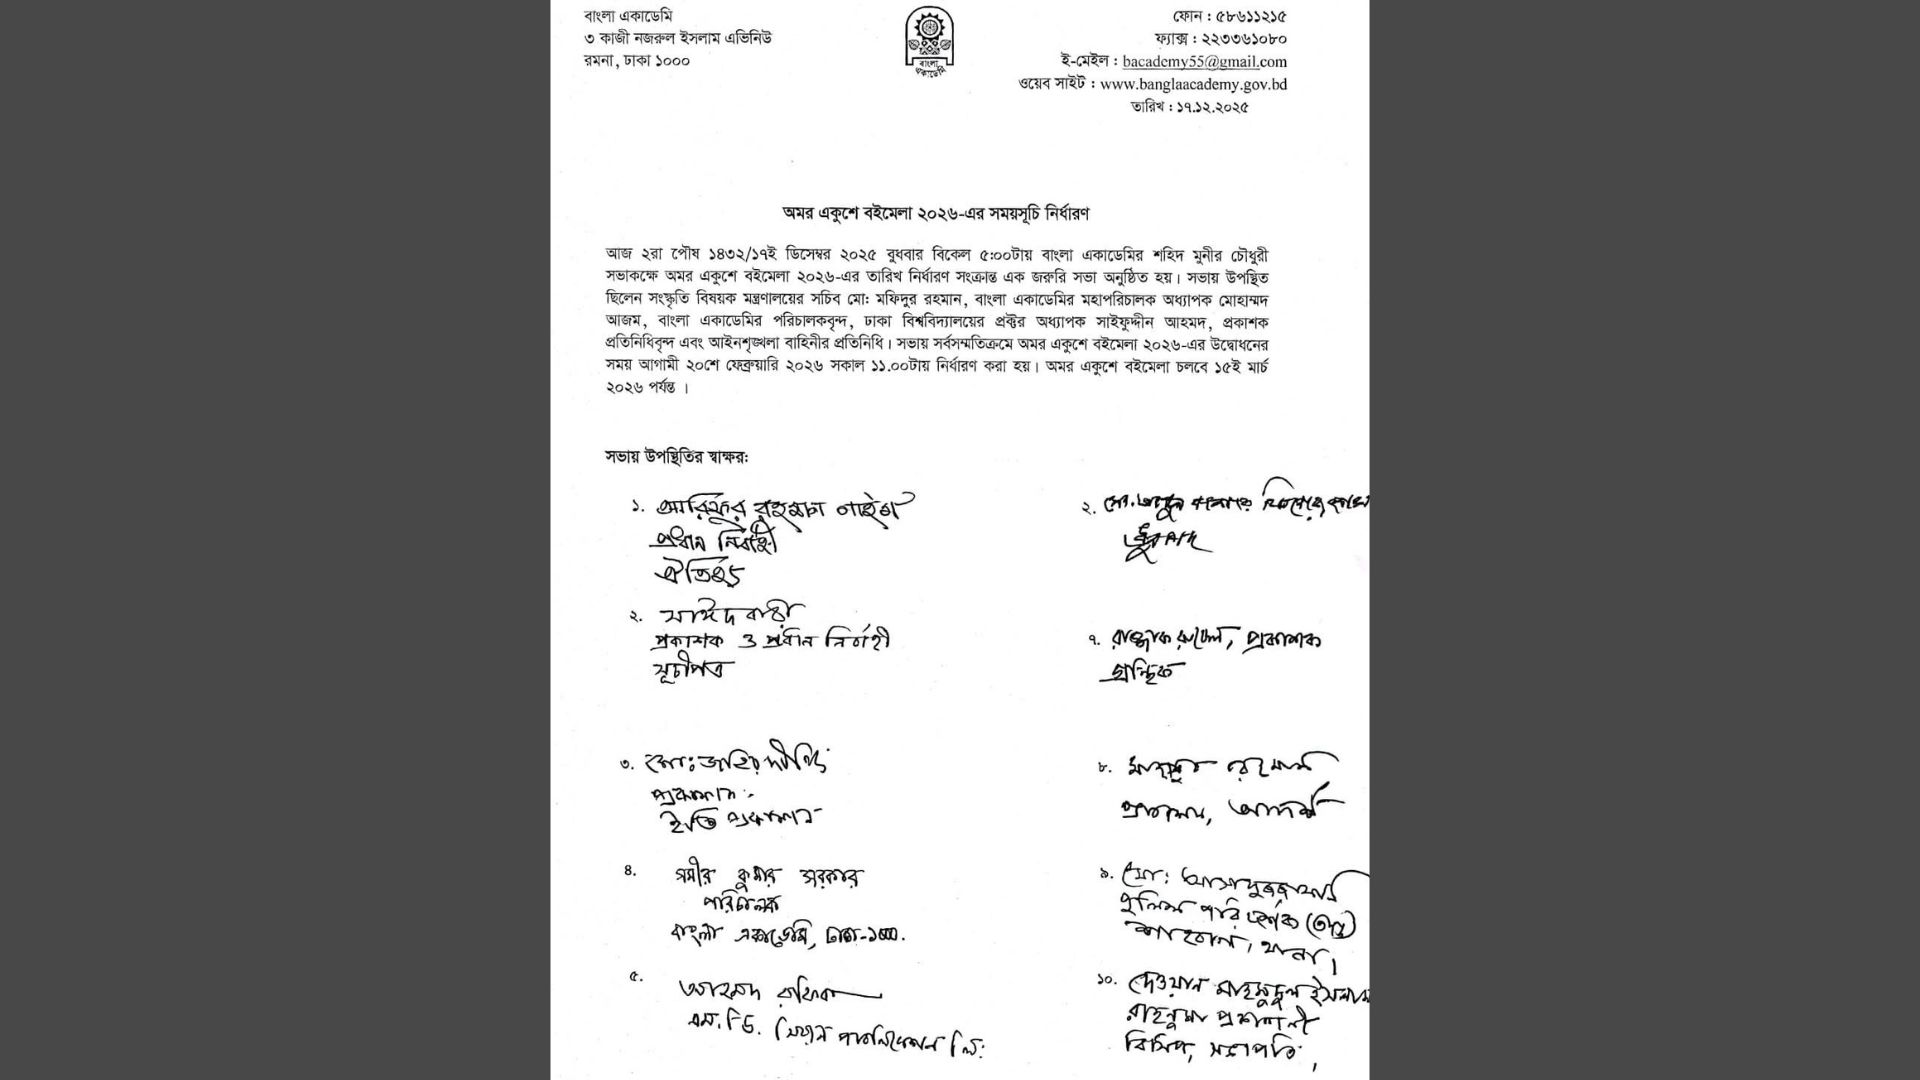 বাংলা একাডেমি
৩ কাজী নজরুল ইসলাম এভিনিউ
রমনা, ঢাকা ১০০০
বাংলা
একাডেমি
ফোন : ৫৮৬১১২১৫
ফ্যাক্স : ২২৩৩৬১০৮০
ই-মেইল : bacademy55@gmail.com
ওয়েব সাইট : www.banglaacademy.gov.bd
তারিখ : ১৭.১২.২০২৫
অমর একুশে বইমেলা ২০২৬-এর সময়সূচি নির্ধারণ
আজ ২রা পৌষ ১৪৩২/১৭ই ডিসেম্বর ২০২৫ বুধবার বিকেল ৫:০০টায় বাংলা একাডেমির শহিদ মুনীর চৌধুরী
সভাকক্ষে অমর একুশে বইমেলা ২০২৬-এর তারিখ নির্ধারণ সংক্রান্ত এক জরুরি সভা অনুষ্ঠিত হয়। সভায় উপস্থিত
ছিলেন সংস্কৃতি বিষয়ক মন্ত্রণালয়ের সচিব মো: মফিদুর রহমান, বাংলা একাডেমির মহাপরিচালক অধ্যাপক মোহাম্মদ
আজম, বাংলা একাডেমির পরিচালকবৃন্দ, ঢাকা বিশ্ববিদ্যালয়ের প্রক্টর অধ্যাপক সাইফুদ্দীন আহমদ, প্রকাশক
প্রতিনিধিবৃন্দ এবং আইনশৃঙ্খলা বাহিনীর প্রতিনিধি। সভায় সর্বসম্মতিক্রমে অমর একুশে বইমেলা ২০২৬-এর উদ্বোধনের
সময় আগামী ২০শে ফেব্রুয়ারি ২০২৬ সকাল ১১.০০টায় নির্ধারণ করা হয়। অমর একুশে বইমেলা চলবে ১৫ই মার্চ
২০২৬ পর্যন্ত ।
সভায় উপস্থিতির স্বাক্ষর:
১. আরিফুর রহমান নাইম
প্রধান নির্বাহী
ঐতিহ্য
২. সাঈদ বারী
প্রকাশক ও প্রধান নির্বাহী
সূচীপত্র
৩. মো: জহির দীপ্তি
প্রকাশক
ইতি প্রকাশন
৪. সমীর কুমার সরকার
পরিচালক
বাংলা একাডেমি, ঢাকা-১০০০.
৫. আহমদ
এম. ডি. পাবলিকেশন লি:
২. মো. আবুল বাশার ফিরোজ
ধ্রুবপদ
৭. রাজ্জাক রুবেল, প্রকাশক
গ্রন্থিক
৮. মাহাবুব রহমান
প্রকাশক, আদর্শ
৯. মো: আসাদুজ্জামান
পুলিশ পরিদর্শক (তদন্ত)
শাহবাগ থানা।
১০. দেওয়ান মাহমুদুল ইসলাম
রাহনুমা প্রকাশনী
সভাপতি